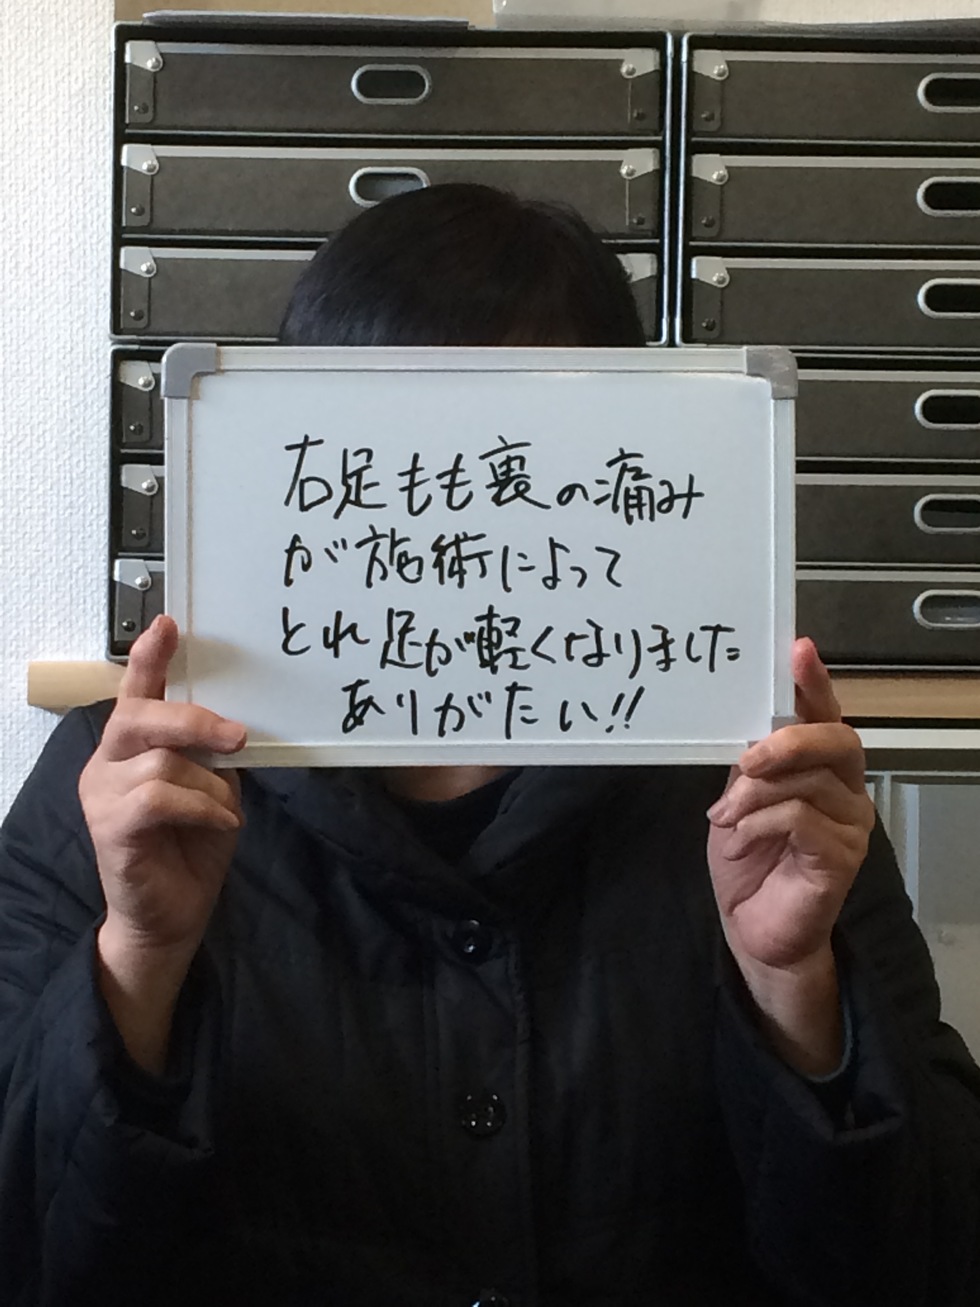 右足もも裏の痛み
が施術によって
とれ足が軽くなりました
ありがたい!!